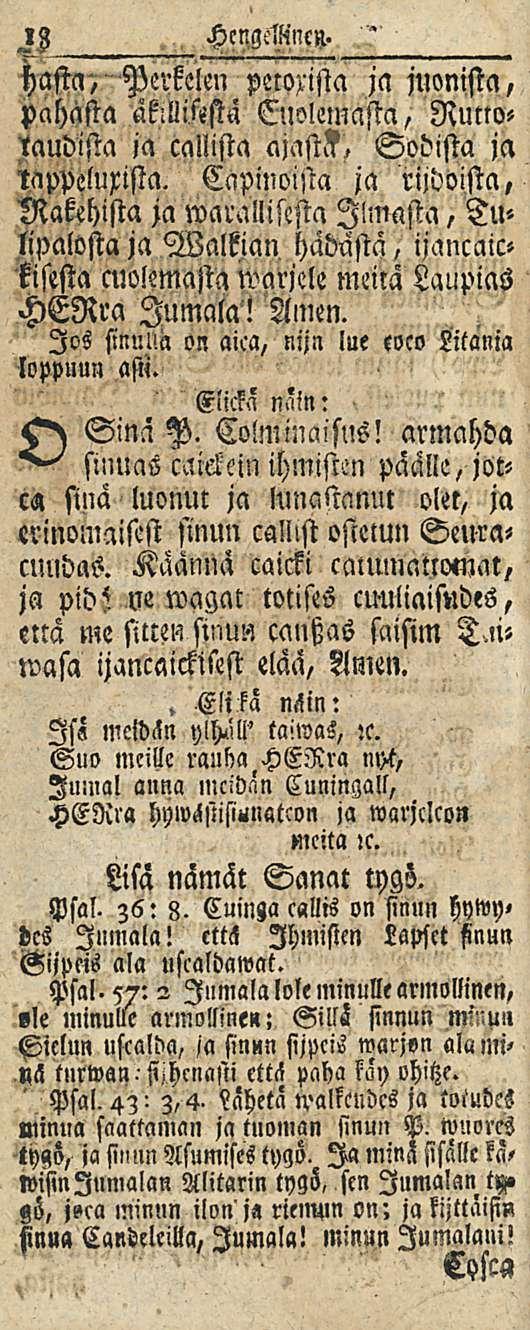 18 Hengellinen.
hasta, Perkelen petoxista ja juonista,
pahasta äkillisestä Cuolemasta, Rutto⸗
taudista ja callista ajasta, Sodista ja
tappeluxista. Capinoista ja rijdoista,
Rakehista ja warallisesta Ilmasta, Tu⸗
lipalosta ja Walkian hädästä, ijancaic⸗
kisesta cuolemasta warjele meitä Laupias
HERra Jumala! Amen.
Jos sinulla on aica, nijn lue coco Litania
loppuun asti.
Elickä näin:
O Sinä P. Colminaisus! armahda
sinuas caickein ihmisten päälle, jot⸗
ca sinä luonut ja lunastanut olet, ja
erinomaisest sinun callist ostetun Seura⸗
cundas. Käännä caicki catumattomat,
ja pidä ne wagat totises cuuliaisudes,
että me sitten sinun canßas saisim Tai⸗
wasa ijancaickisest elää, Amen.
Elikä näin:
Isä meidän ylhäll' taiwas, ꝛc.
Suo meille rauha HERra nyt,
Jumal anna meidän Cuningall,
HERra hywästisiunatcon ja warjelcon
meitä ꝛc.
Lisä nämät Sanat tygö.
Psal. 36: 8. Cuinga callis on sinun hywy⸗
des Jumala! että Ihmisten Lapset sinun
Sijpeis ala uscaldawat.
Psal. 57: 2 Jumala lole minulle armollinen,
ole minulle armollinen; Sillä sinnun minun
Sielun uscalda, ja sinun sijpeis warjon ala mi⸗
nä turwan: sijhenasti että paha käy ohitze.
Psal. 43: 3, 4. Lähetä walkeudes ja totudes
minua saattaman ja tuoman sinun P. wuores
tygö, ja sinun Asumises tygö. Ja minä sisälle kä⸗
wisin Jumalan Alitarin tygö, sen Jumalan ty⸗
gö, joca minun ilon' ja riemun on; ja kijttäisin
sinua Candeleilla, Jumala! minun Jumalani!
Cosca